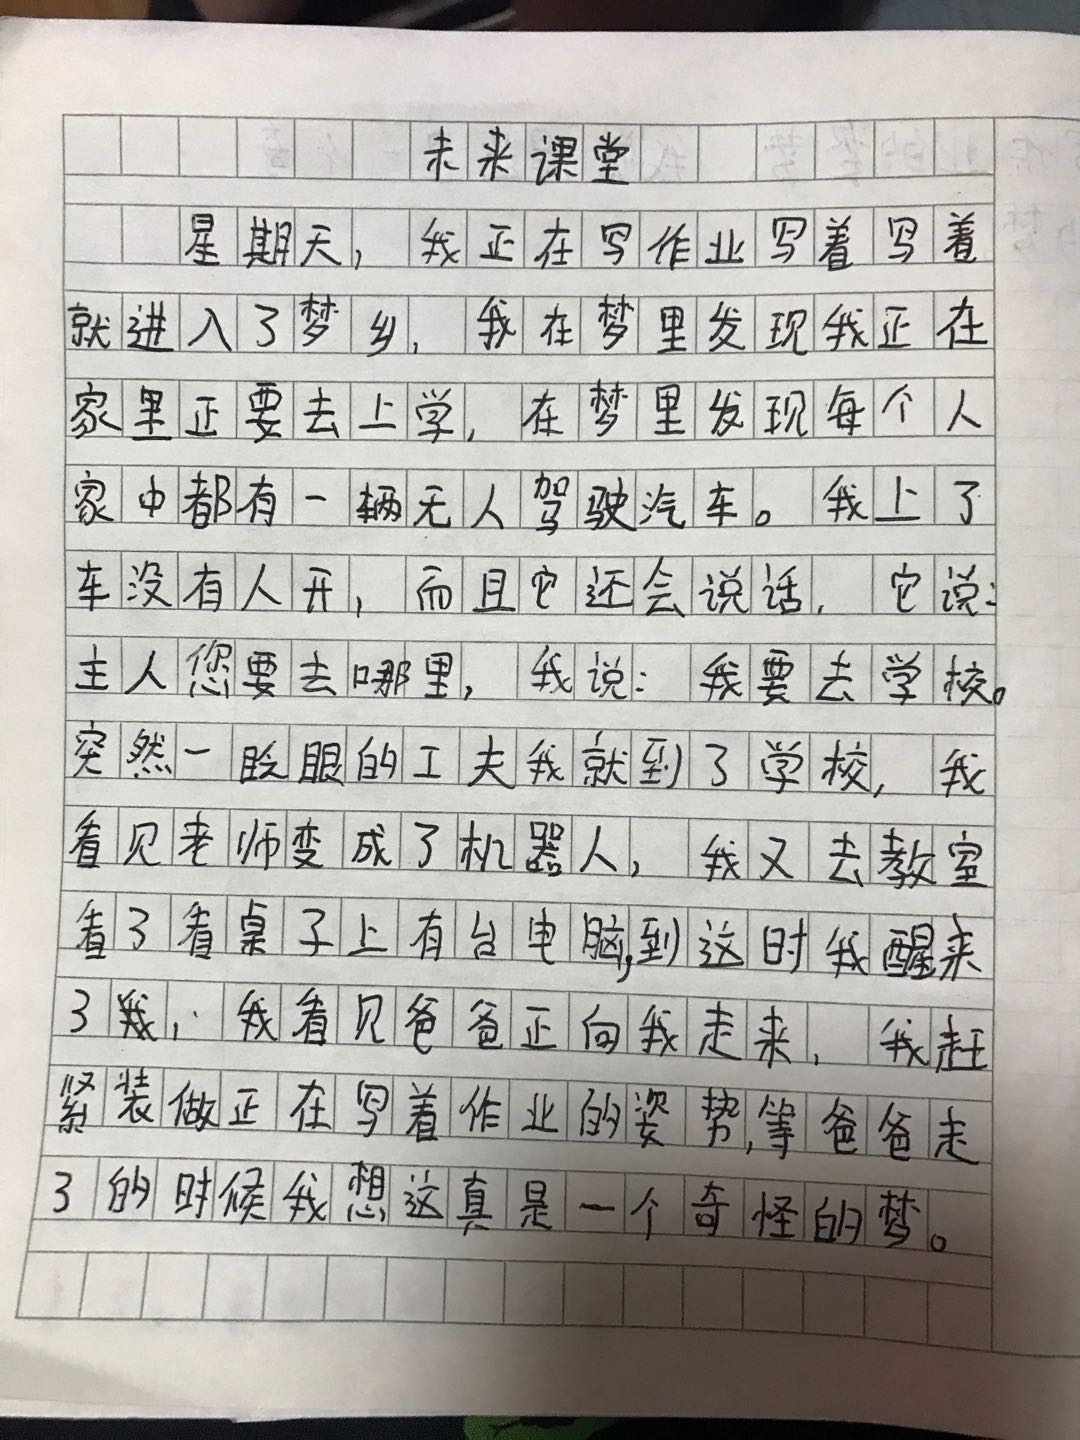 未来课堂
星期天，我正在写作业写着写着
就进入了梦乡，我在梦里发现我正在
家里正要去上学，在梦里发现每个人
家中都有一辆无人驾驶汽车。我上了
车没有人开，而且它还会说话，它说：
主人您要去哪里，我说：我要去学校。
突然一眨眼的工夫我就到了学校，我
看见老师变成了机器人，我又去教室
看了看桌子上有台电脑，到这时我醒来
了我，我看见爸爸正向我走来，我赶
紧装做正在写着作业的姿势，等爸爸走
了的时候我想这真是一个奇怪的梦。